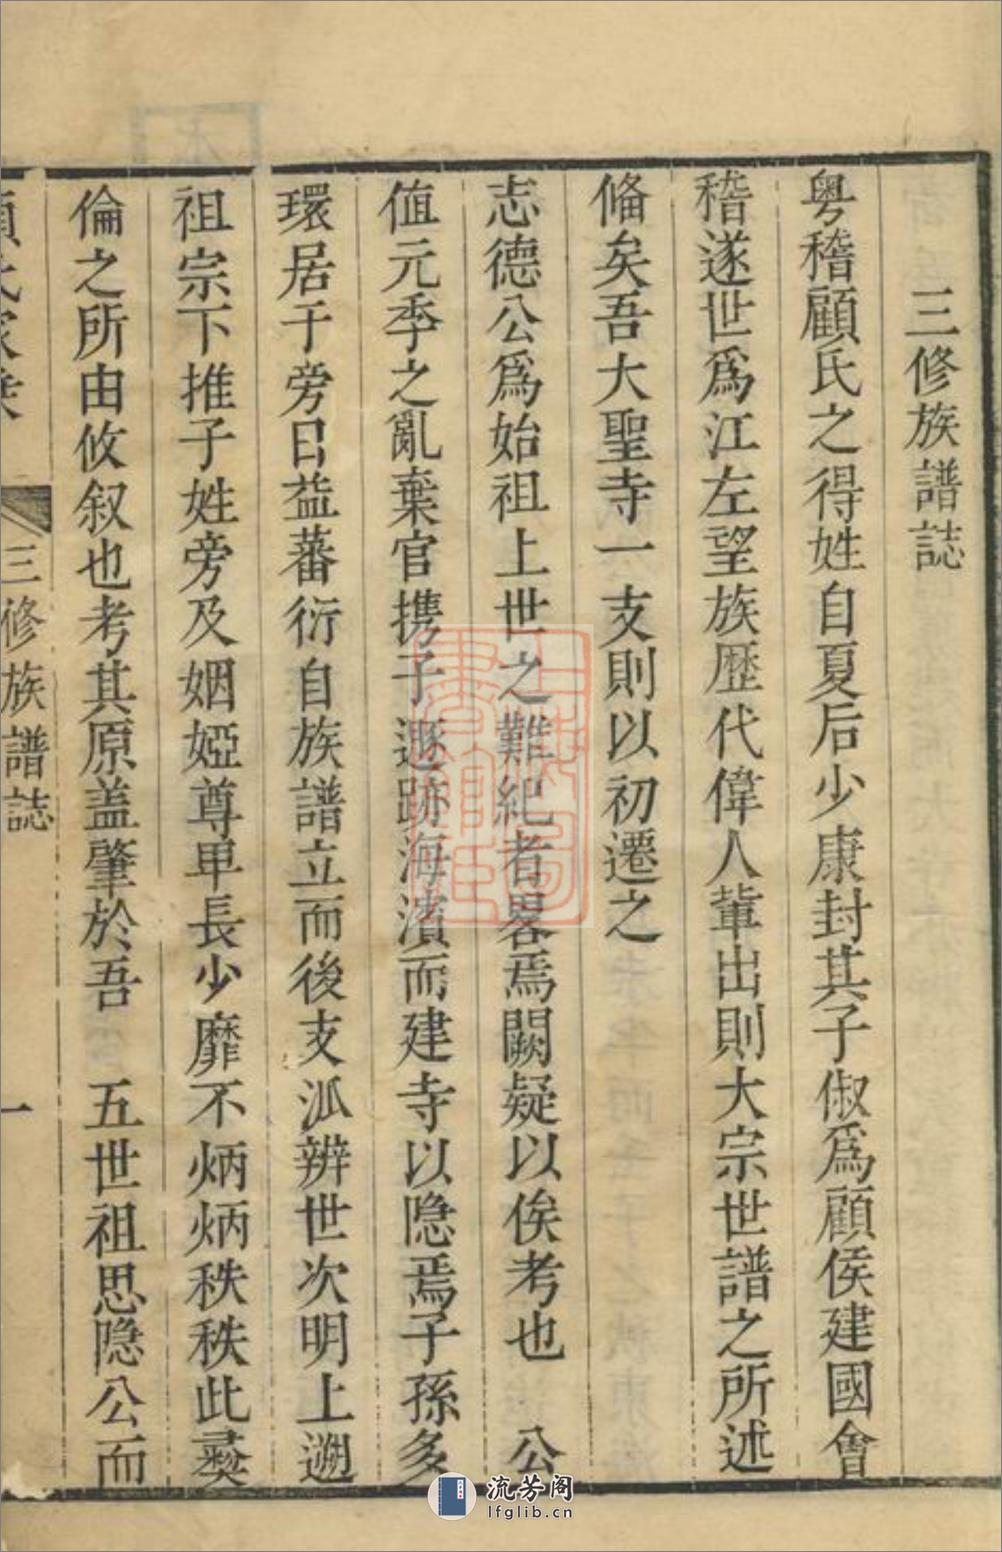 三修族譜誌
粤稽顧氏之得姓自夏后少康封其子俶爲顧侯建國會
稽遂世爲江左望族歷代偉人輩出則大宗世譜之所述
偹矣吾大聖寺一支則以初遷之
志德公爲始祖上世之難紀者畧焉闕疑以俟考也　公
值元季之亂棄官携子遯跡海濱而建寺以隐焉子孫多
環居于旁日益蕃衍自族譜立而後支派辨世次明上遡
祖宗下推子姓旁及姻婭尊卑長少靡不炳炳秩秩此彛
倫之所由攸叙也考其原盖肇於吾　五世祖思隐公而
顧氏家乘　三修族譜誌　一
上海圖書館藏
流芳阁
lfglib.cn